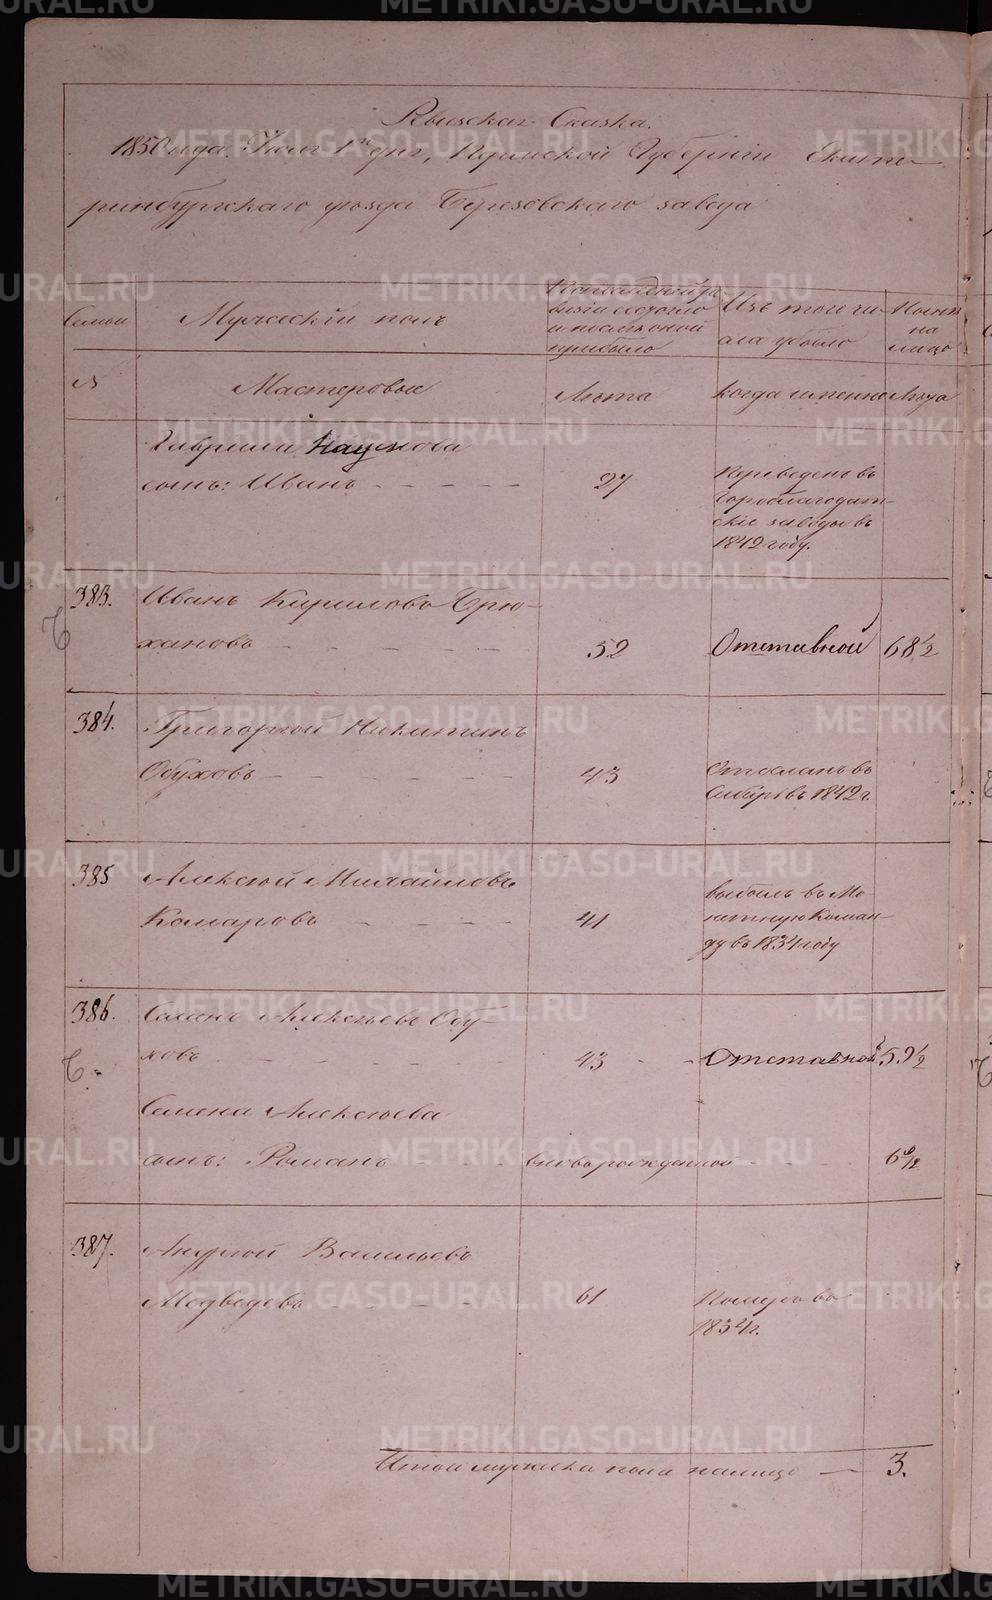 METRIKI.GASO-URAL.RU
Ревизская Сказка.
1850 года Июня 1го дня, Пермской Губерніи Екате-
ринбургскаго уѣзда Березовскаго завода
Семьи
Мужескій полъ
По послѣдней ре-
визіи состояло
и послѣ оной
прибыло
Изъ того чи-
сла убыло
Нынѣ
на
лицо
№
Мастеровые
Лѣта
когда именно
Лѣта
Гаврила Наумова
сынъ: Иванъ
27
Переведенъ въ
Гороблагодат-
скіе заводы въ
1842 году.
383.
Иванъ Кириловъ Брю-
хановъ
52
Отставной
68 1/2
384.
Григорей Никитинъ
Обуховъ
43
Отосланъ въ
Сибирь въ 1842 г.
385
Алексѣй Михайловъ
Комаровъ
41
выбылъ въ Мо-
нетную Коман-
ду въ 1834 году
386.
Семенъ Алексѣевъ Обу-
ховъ
43
Отставной
59 1/2
Семена Алексѣева
сынъ: Романъ
вновь рожденной
6 6/12
387.
Андрей Васильевъ
Медведевъ
61
Померъ въ
1834 г.
Итого мужеска пола налицо
3.